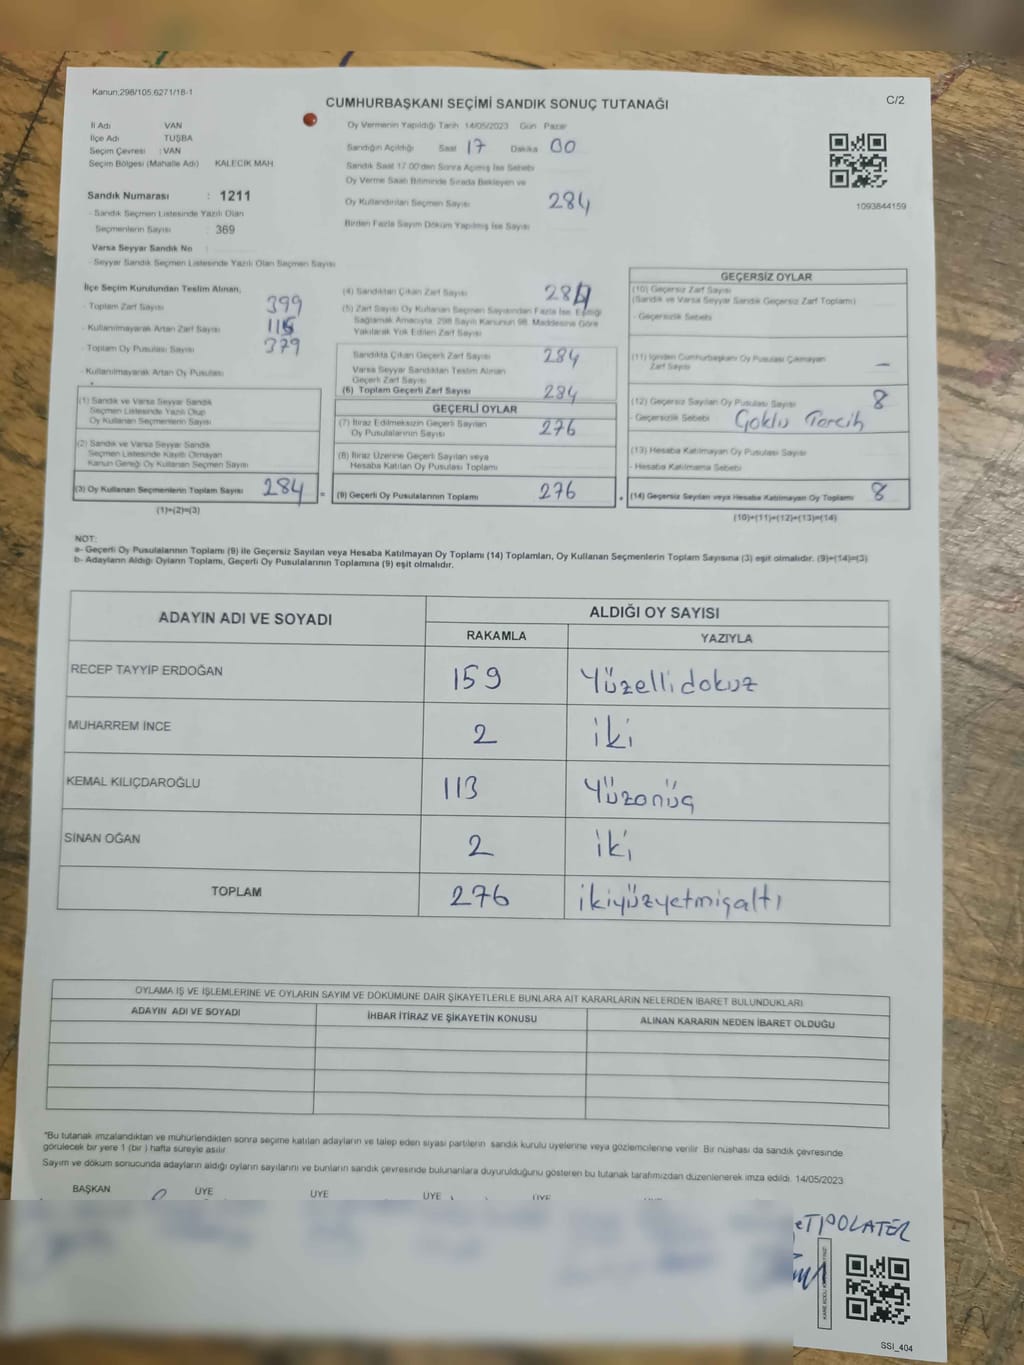 Kanun:298/105;6271/18-1
C/2
CUMHURBAŞKANI SEÇİMİ SANDIK SONUÇ TUTANAĞI
İl Adı VAN
İlçe Adı TUŞBA
Seçim Çevresi : VAN
Seçim Bölgesi (Mahalle Adı) KALECİK MAH.
Sandık Numarası : 1211
- Sandık Seçmen Listesinde Yazılı Olan
Seçmenlerin Sayısı : 369
Varsa Seyyar Sandık No
- Seyyar Sandık Seçmen Listesinde Yazılı Olan Seçmen Sayısı
Oy Vermenin Yapıldığı Tarih 14/05/2023 Gün Pazar
Sandığın Açıldığı Saat 17 Dakika 00
Sandık Saat 17.00'den Sonra Açılmış İse Sebebi
Oy Verme Saati Bitiminde Sırada Bekleyen ve
Oy Kullandırılan Seçmen Sayısı 284
Birden Fazla Sayım Döküm Yapılmış İse Sayısı
1093844159
İlçe Seçim Kurulundan Teslim Alınan,
- Toplam Zarf Sayısı 399
- Kullanılmayarak Artan Zarf Sayısı 115
- Toplam Oy Pusulası Sayısı 379
- Kullanılmayarak Artan Oy Pusulası
(1) Sandık ve Varsa Seyyar Sandık
Seçmen Listesinde Yazılı Olup
Oy Kullanan Seçmenlerin Sayısı
(2) Sandık ve Varsa Seyyar Sandık
Seçmen Listesinde Kayıtlı Olmayan
Kanun Gereği Oy Kullanan Seçmen Sayısı
(3) Oy Kullanan Seçmenlerin Toplam Sayısı 284 =
(1)+(2)=(3)
(4) Sandıktan Çıkan Zarf Sayısı 284
(5) Zarf Sayısı Oy Kullanan Seçmen Sayısından Fazla İse, Eşitliği
Sağlamak Amacıyla, 298 Sayılı Kanunun 98. Maddesine Göre
Yakılarak Yok Edilen Zarf Sayısı
Sandıkta Çıkan Geçerli Zarf Sayısı 284
Varsa Seyyar Sandıktan Teslim Alınan
Geçerli Zarf Sayısı
(6) Toplam Geçerli Zarf Sayısı 284
GEÇERLİ OYLAR
(7) İtiraz Edilmeksizin Geçerli Sayılan
Oy Pusulalarının Sayısı 276
(8) İtiraz Üzerine Geçerli Sayılan veya
Hesaba Katılan Oy Pusulası Toplamı
(9) Geçerli Oy Pusulalarının Toplamı 276 +
GEÇERSİZ OYLAR
(10) Geçersiz Zarf Sayısı
(Sandık ve Varsa Seyyar Sandık Geçersiz Zarf Toplamı)
- Geçersizlik Sebebi
(11) İçinden Cumhurbaşkanı Oy Pusulası Çıkmayan
Zarf Sayısı —
(12) Geçersiz Sayılan Oy Pusulası Sayısı 8
- Geçersizlik Sebebi Çoklu Tercih
(13) Hesaba Katılmayan Oy Pusulası Sayısı
- Hesaba Katılmama Sebebi
(14) Geçersiz Sayılan veya Hesaba Katılmayan Oy Toplamı 8
(10)+(11)+(12)+(13)=(14)
NOT:
a- Geçerli Oy Pusulalarının Toplamı (9) ile Geçersiz Sayılan veya Hesaba Katılmayan Oy Toplamı (14) Toplamları, Oy Kullanan Seçmenlerin Toplam Sayısına (3) eşit olmalıdır. (9)+(14)=(3)
b- Adayların Aldığı Oyların Toplamı, Geçerli Oy Pusulalarının Toplamına (9) eşit olmalıdır.
ADAYIN ADI VE SOYADI
ALDIĞI OY SAYISI
RAKAMLA YAZIYLA
RECEP TAYYİP ERDOĞAN 159 Yüzellidokuz
MUHARREM İNCE 2 iki
KEMAL KILIÇDAROĞLU 113 Yüzonüç
SİNAN OĞAN 2 iki
TOPLAM 276 ikiyüzyetmişaltı
OYLAMA İŞ VE İŞLEMLERİNE VE OYLARIN SAYIM VE DÖKÜMÜNE DAİR ŞİKAYETLERLE BUNLARA AİT KARARLARIN NELERDEN İBARET BULUNDUKLARI
ADAYIN ADI VE SOYADI İHBAR İTİRAZ VE ŞİKAYETİN KONUSU ALINAN KARARIN NEDEN İBARET OLDUĞU
*Bu tutanak imzalandıktan ve mühürlendikten sonra seçime katılan adayların ve talep eden siyasi partilerin sandık kurulu üyelerine veya gözlemcilerine verilir. Bir nüshası da sandık çevresinde
görülecek bir yere 1 (bir) hafta süreyle asılır.
Sayım ve döküm sonucunda adayların aldığı oyların sayılarını ve bunların sandık çevresinde bulunanlara duyurulduğunu gösteren bu tutanak tarafımızdan düzenlenerek imza edildi. 14/05/2023
BAŞKAN ÜYE ÜYE ÜYE ÜYE
SSİ_404